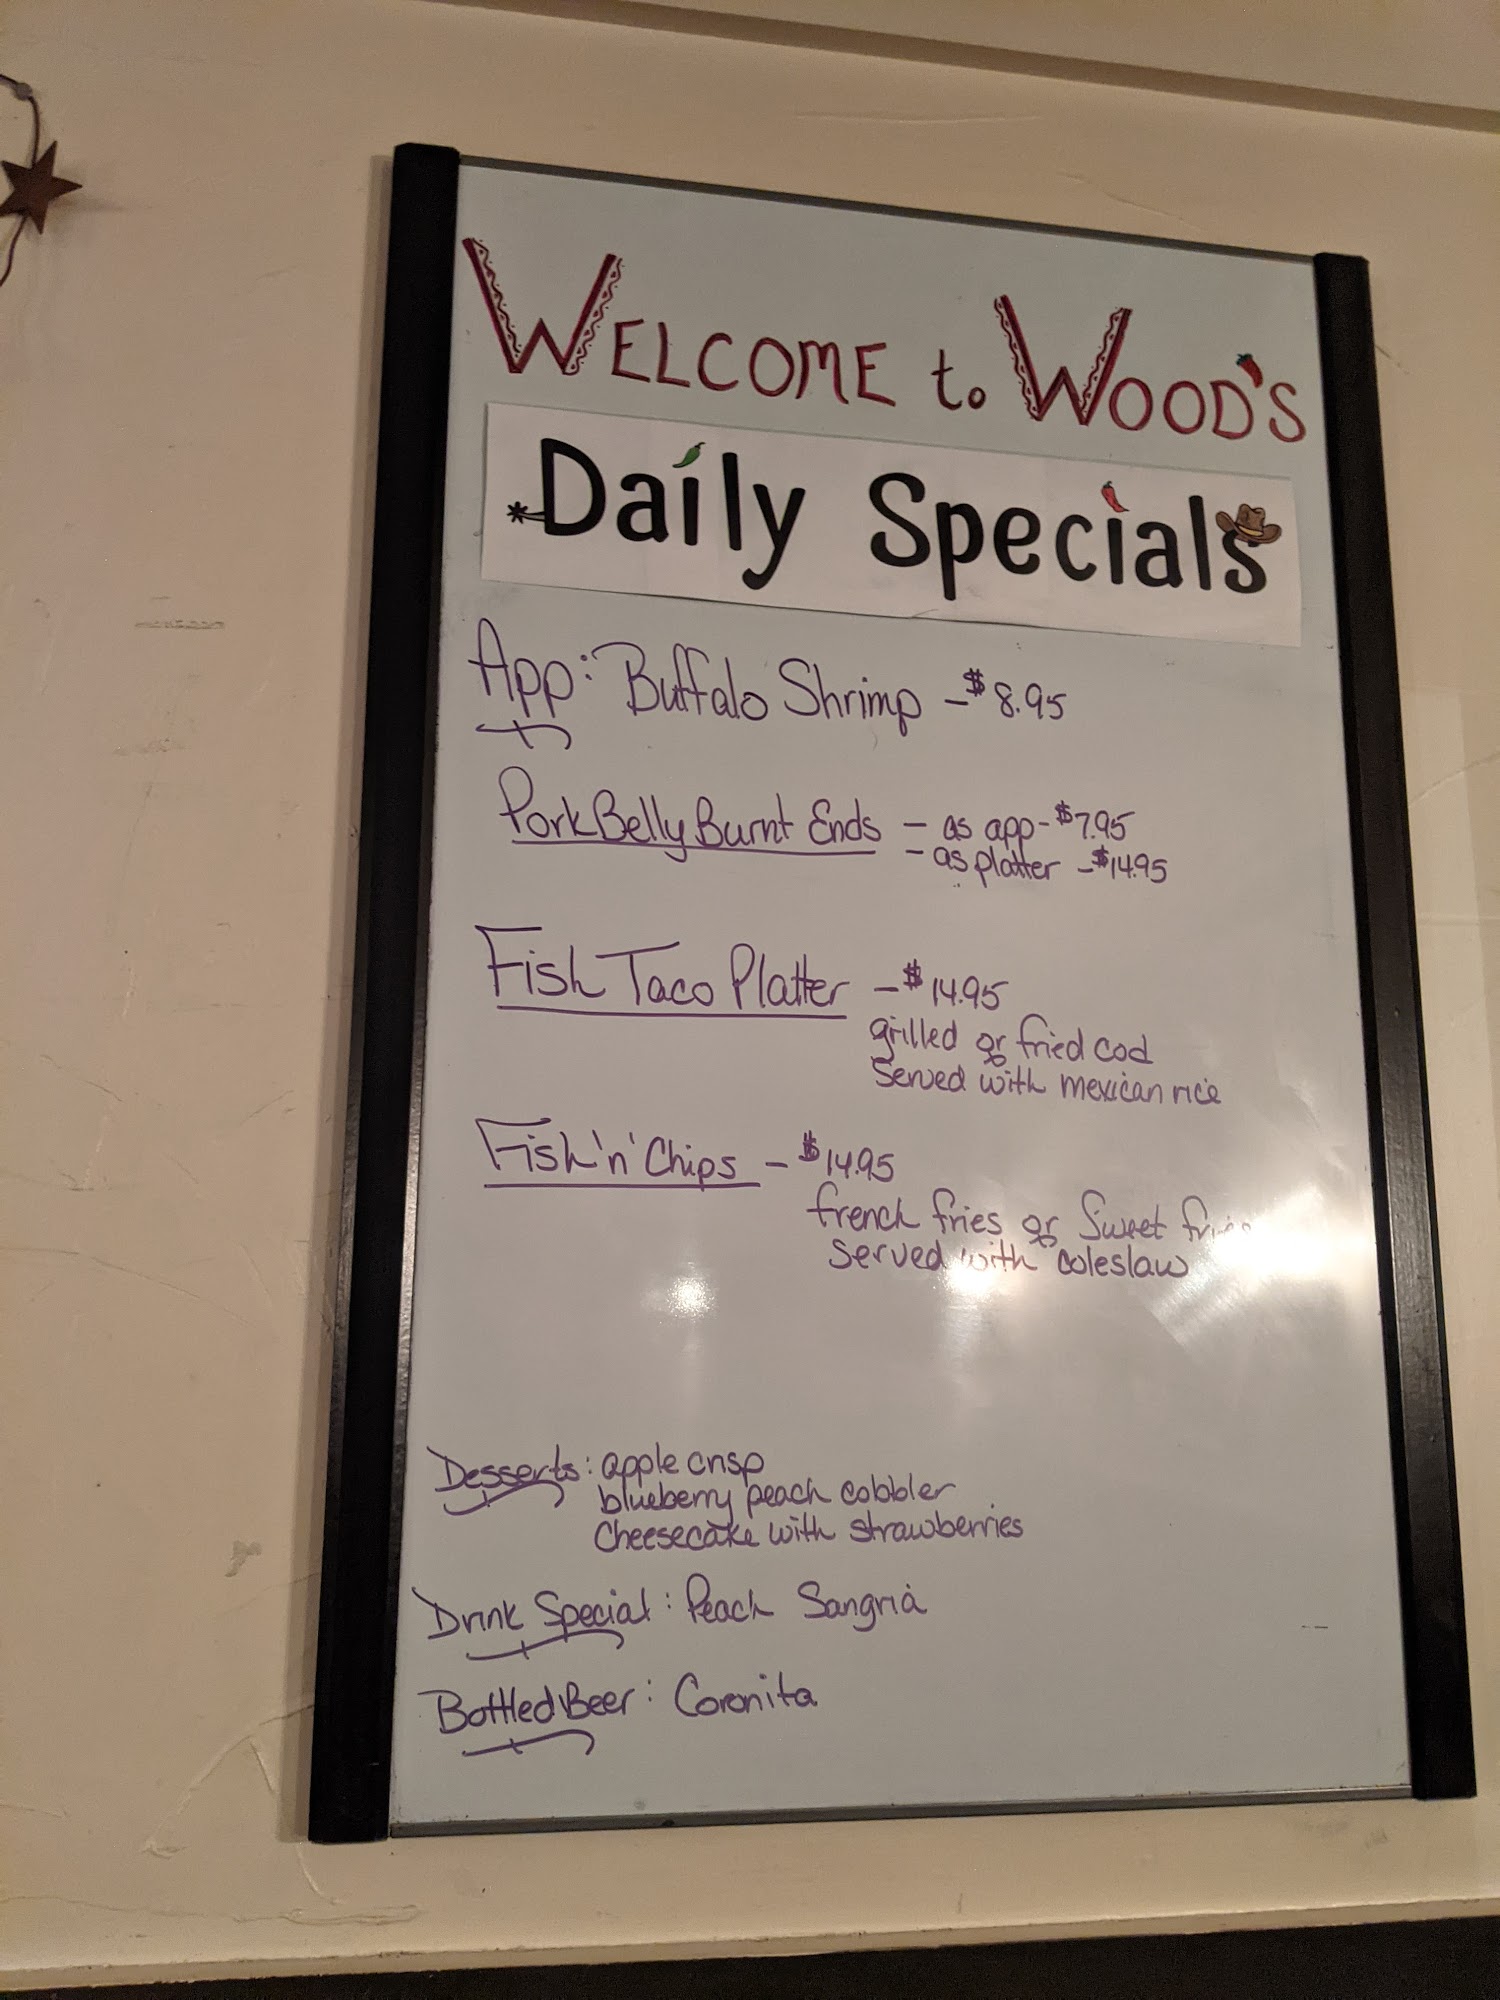 WELCOME to WOOD'S
Daily Specials
App: Buffalo Shrimp - $8.95
Pork Belly Burnt Ends - as app - $7.95
- as platter - $14.95
Fish Taco Platter - $14.95
grilled or fried cod
Served with mexican rice
Fish 'n' Chips - $14.95
french fries or Sweet fries
served with coleslaw
Desserts: apple crisp
blueberry peach cobbler
Cheesecake with strawberries
Drink Special: Peach Sangria
Bottled Beer: Coronita